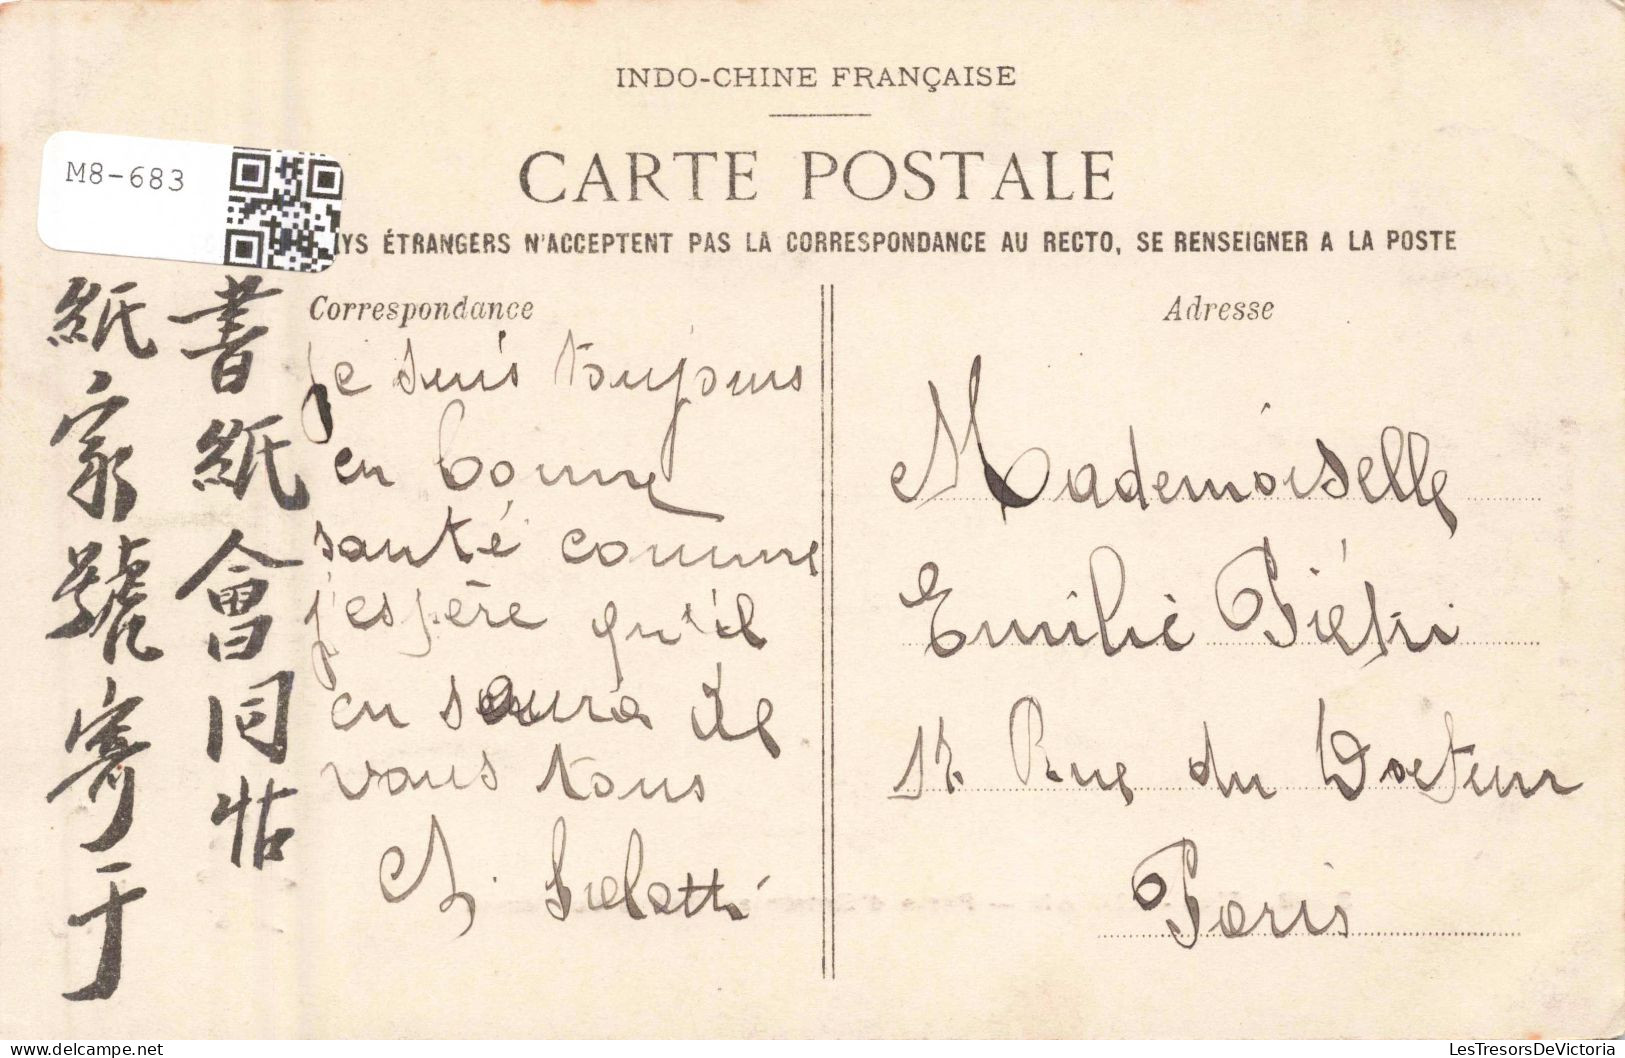 INDO-CHINE FRANÇAISE
CARTE POSTALE
M8-683
YS ÉTRANGERS N'ACCEPTENT PAS LA CORRESPONDANCE AU RECTO, SE RENSEIGNER A LA POSTE
Correspondance
Je suis toujours
en bonne
santé comme
j'espère qu'il
en sera de
vous tous
Adresse
Mademoiselle
Emilie Piétri
17 Rue du Docteur
Paris
書紙會同怙
紙家號寄于
LesTresorsDeVictoria